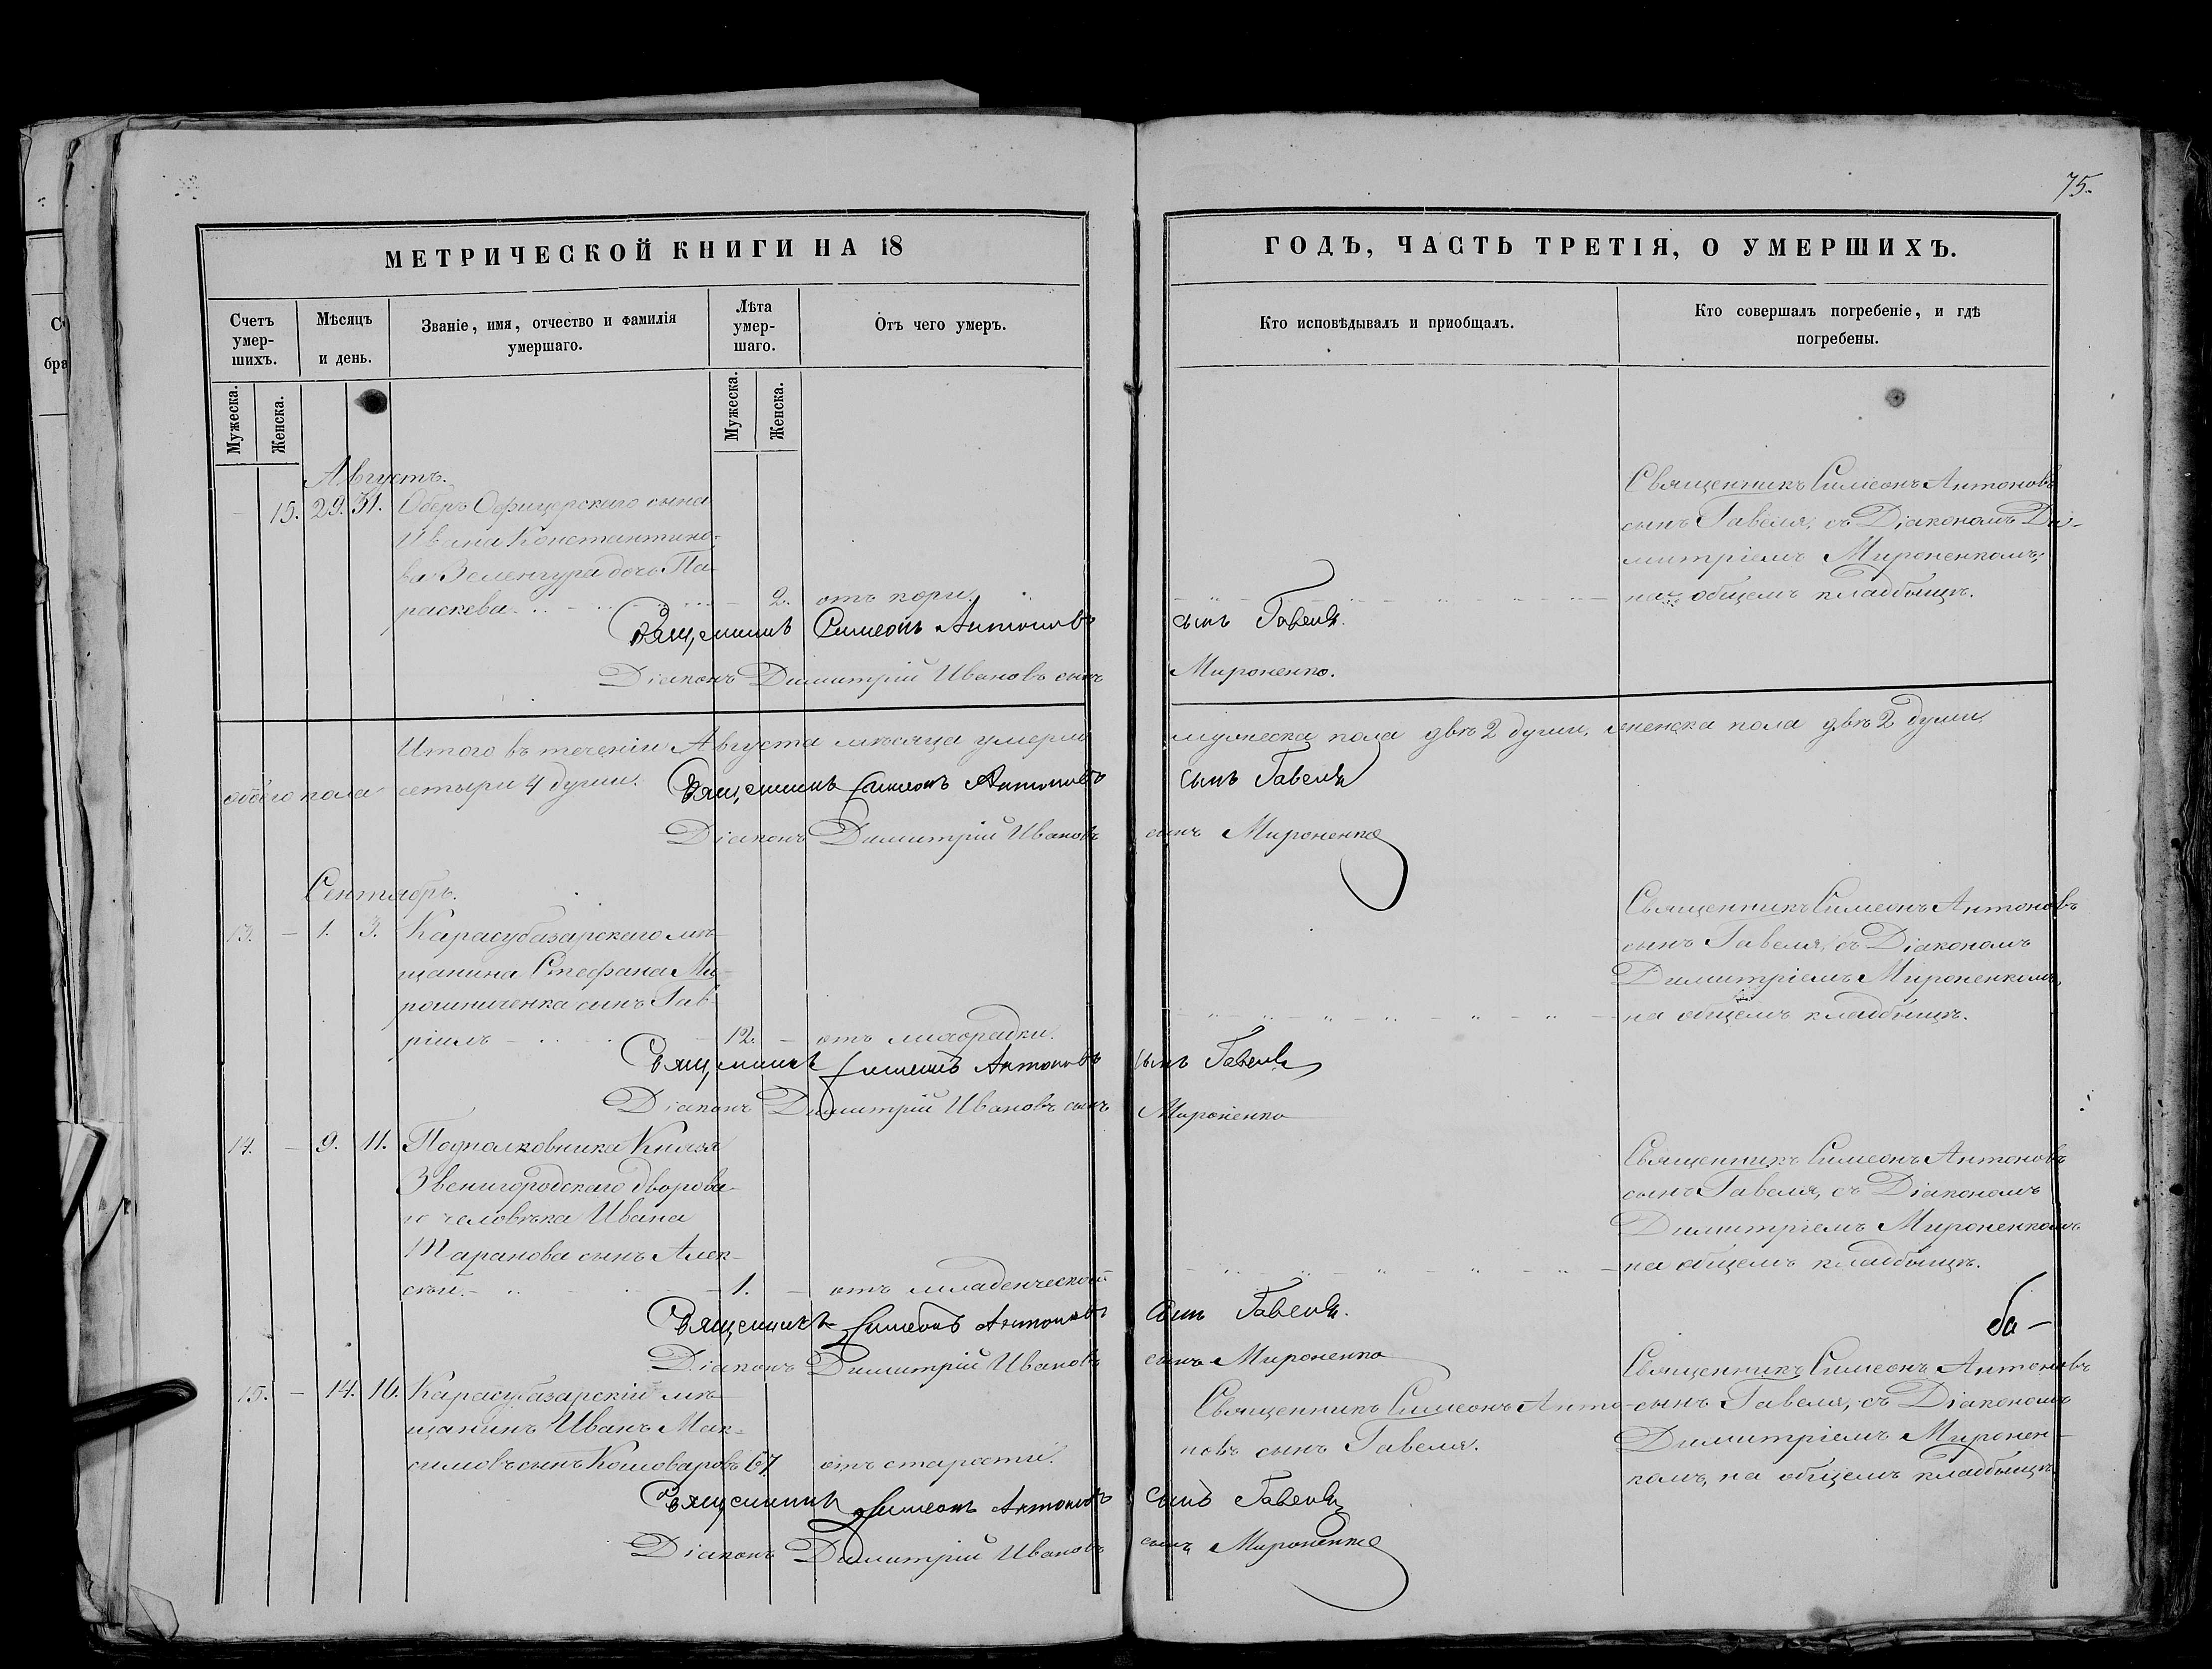 75.
МЕТРИЧЕСКОЙ КНИГИ НА 18
ГОДЪ, ЧАСТЬ ТРЕТІЯ, О УМЕРШИХЪ.
Счетъ умер-шихъ.
Мѣсяцъ и день.
Званіе, имя, отчество и фамилія умершаго.
Лѣта умер-шаго.
Отъ чего умеръ.
Кто исповѣдывалъ и пріобщалъ.
Кто совершалъ погребеніе, и гдѣ погребены.
Мужеска.
Женска.
Мужеска.
Женска.
Августъ.
15. 29. 31. Оберъ Офицерскаго сына
Ивана Константино-
ва Зеленгура дочь Па-
раскева 2. отъ кори.
Священникъ Симеонъ Антоновъ
сынъ Гавеля, съ Діакономъ Ди-
митріемъ Мироненкомъ,
на общемъ кладбищѣ.
Священникъ Симеонъ Антоновъ сынъ Гавеля.
Діаконъ Димитрій Ивановъ сынъ Мироненко.
Итого въ теченіи Августа мѣсяца умерли мужеска пола двѣ 2 души, женска пола двѣ 2 души,
обоего пола четыри 4 души. Священникъ Симеонъ Антоновъ сынъ Гавеля
Діаконъ Димитрій Ивановъ сынъ Мироненко
Сентябрь.
13. – 1. 3. Карасубазарскаго мѣ-
щанина Стефана Ми-
рошниченка сынъ Гав-
ріилъ 12. – отъ лихорадки.
Священникъ Симеонъ Антоновъ
сынъ Гавеля, съ Діакономъ
Димитріемъ Мироненкомъ,
на общемъ кладбищѣ.
Священникъ Симеонъ Антоновъ сынъ Гавеля
Діаконъ Димитрій Ивановъ сынъ Мироненко
14. – 9. 11. Подполковника Князя
Звенигородскаго дворова-
го человѣка Ивана
Таранова сынъ Алек-
сѣй. 1. – отъ младенческой
Священникъ Симеонъ Антоновъ
сынъ Гавеля, съ Діакономъ
Димитріемъ Мироненкомъ
на общемъ кладбищѣ.
Священникъ Симеонъ Антоновъ сынъ Гавеля.
Діаконъ Димитрій Ивановъ сынъ Мироненко
15. – 14. 16. Карасубазарскій мѣ-
щанинъ Иванъ Мак-
симовъ сынъ Комоваровъ 67 отъ старости.
Священникъ Симеонъ Анто-
новъ сынъ Гавеля.
Священникъ Симеонъ Антоновъ
сынъ Гавеля, съ Діакономъ
Димитріемъ Миронен-
комъ, на общемъ кладбищѣ
Священникъ Симеонъ Антоновъ сынъ Гавеля
Діаконъ Димитрій Ивановъ сынъ Мироненко